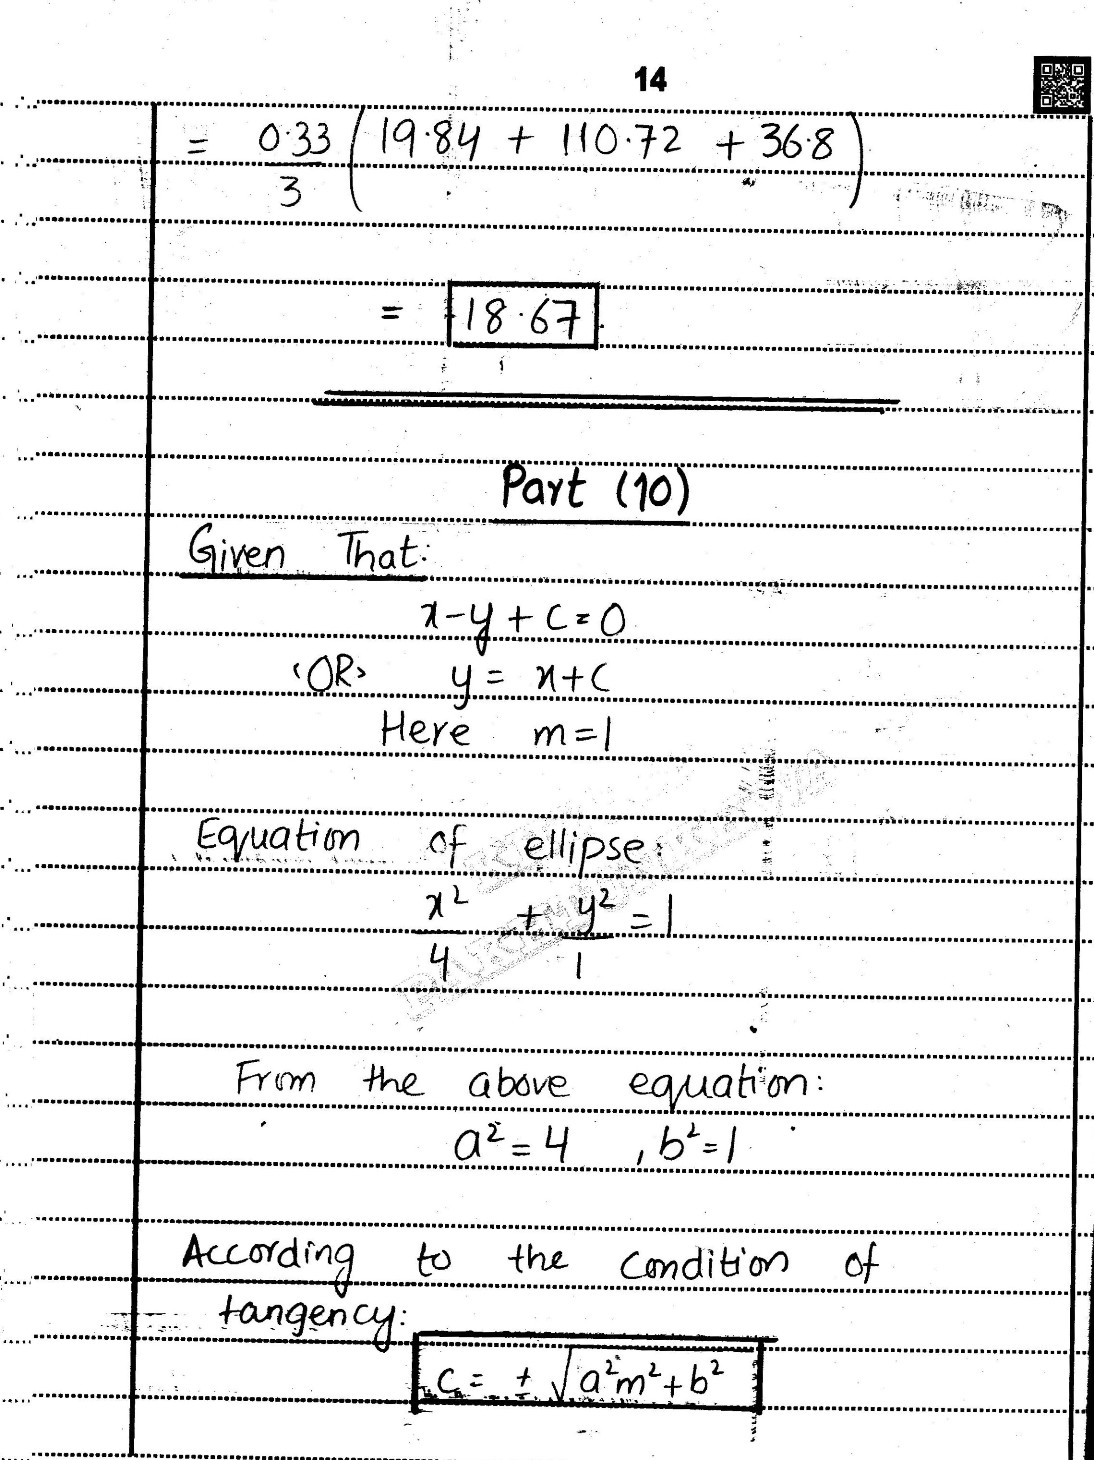 14
= 0.33/3 (19.84 + 110.72 + 36.8)
= 18.67
Part (10)
Given That:
x-y+c=0
"OR" y = x+c
Here m=1
Equation of ellipse:
x²/4 + y²/1 = 1
From the above equation:
a²=4 , b²=1
According to the condition of
tangency:
c = ± √a²m²+b²